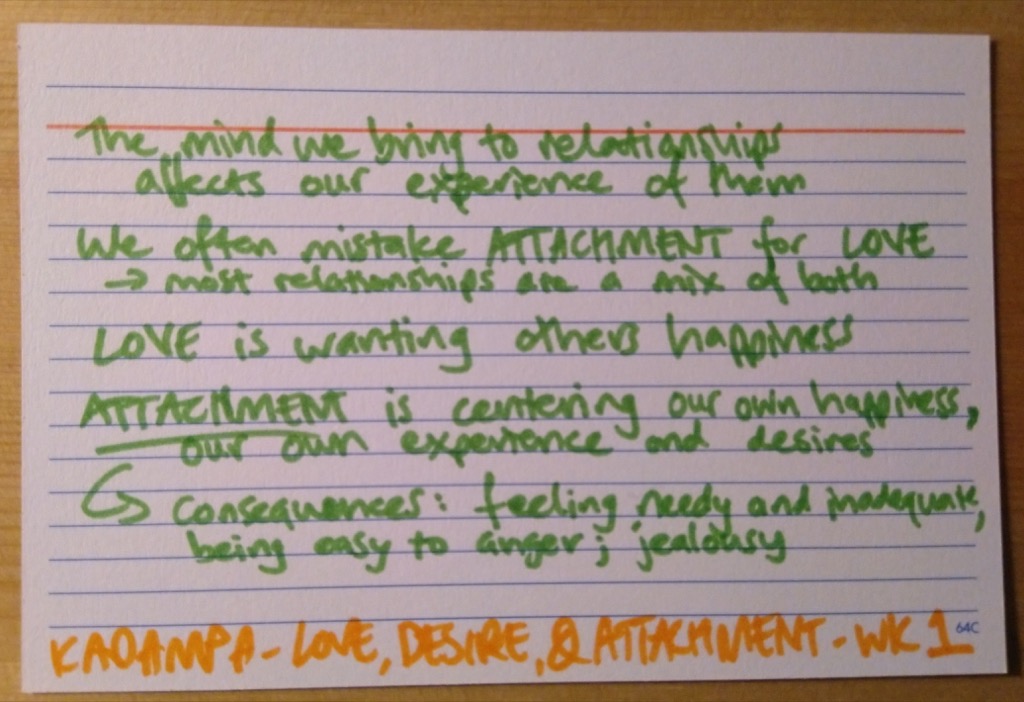 The mind we bring to relationships
affects our experience of them
We often mistake ATTACHMENT for LOVE
→ most relationships are a mix of both
LOVE is wanting others happiness
ATTACHMENT is centering our own happiness,
our own experience and desires
↳ consequences: feeling needy and inadequate,
being easy to anger; jealousy
KADAMPA - LOVE, DESIRE, & ATTACHMENT - WK 1
64C